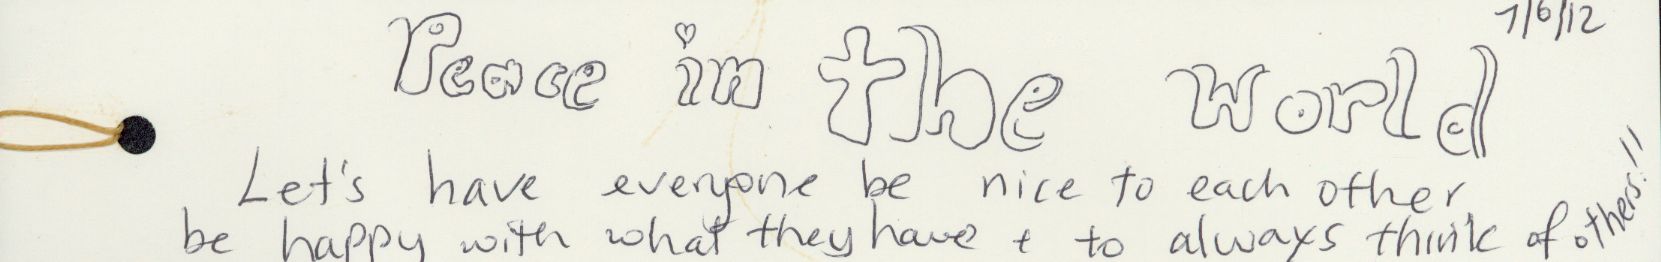 7/6/12
Peace in the world
Let's have everyone be nice to each other
be happy with what they have + to always think of others!!